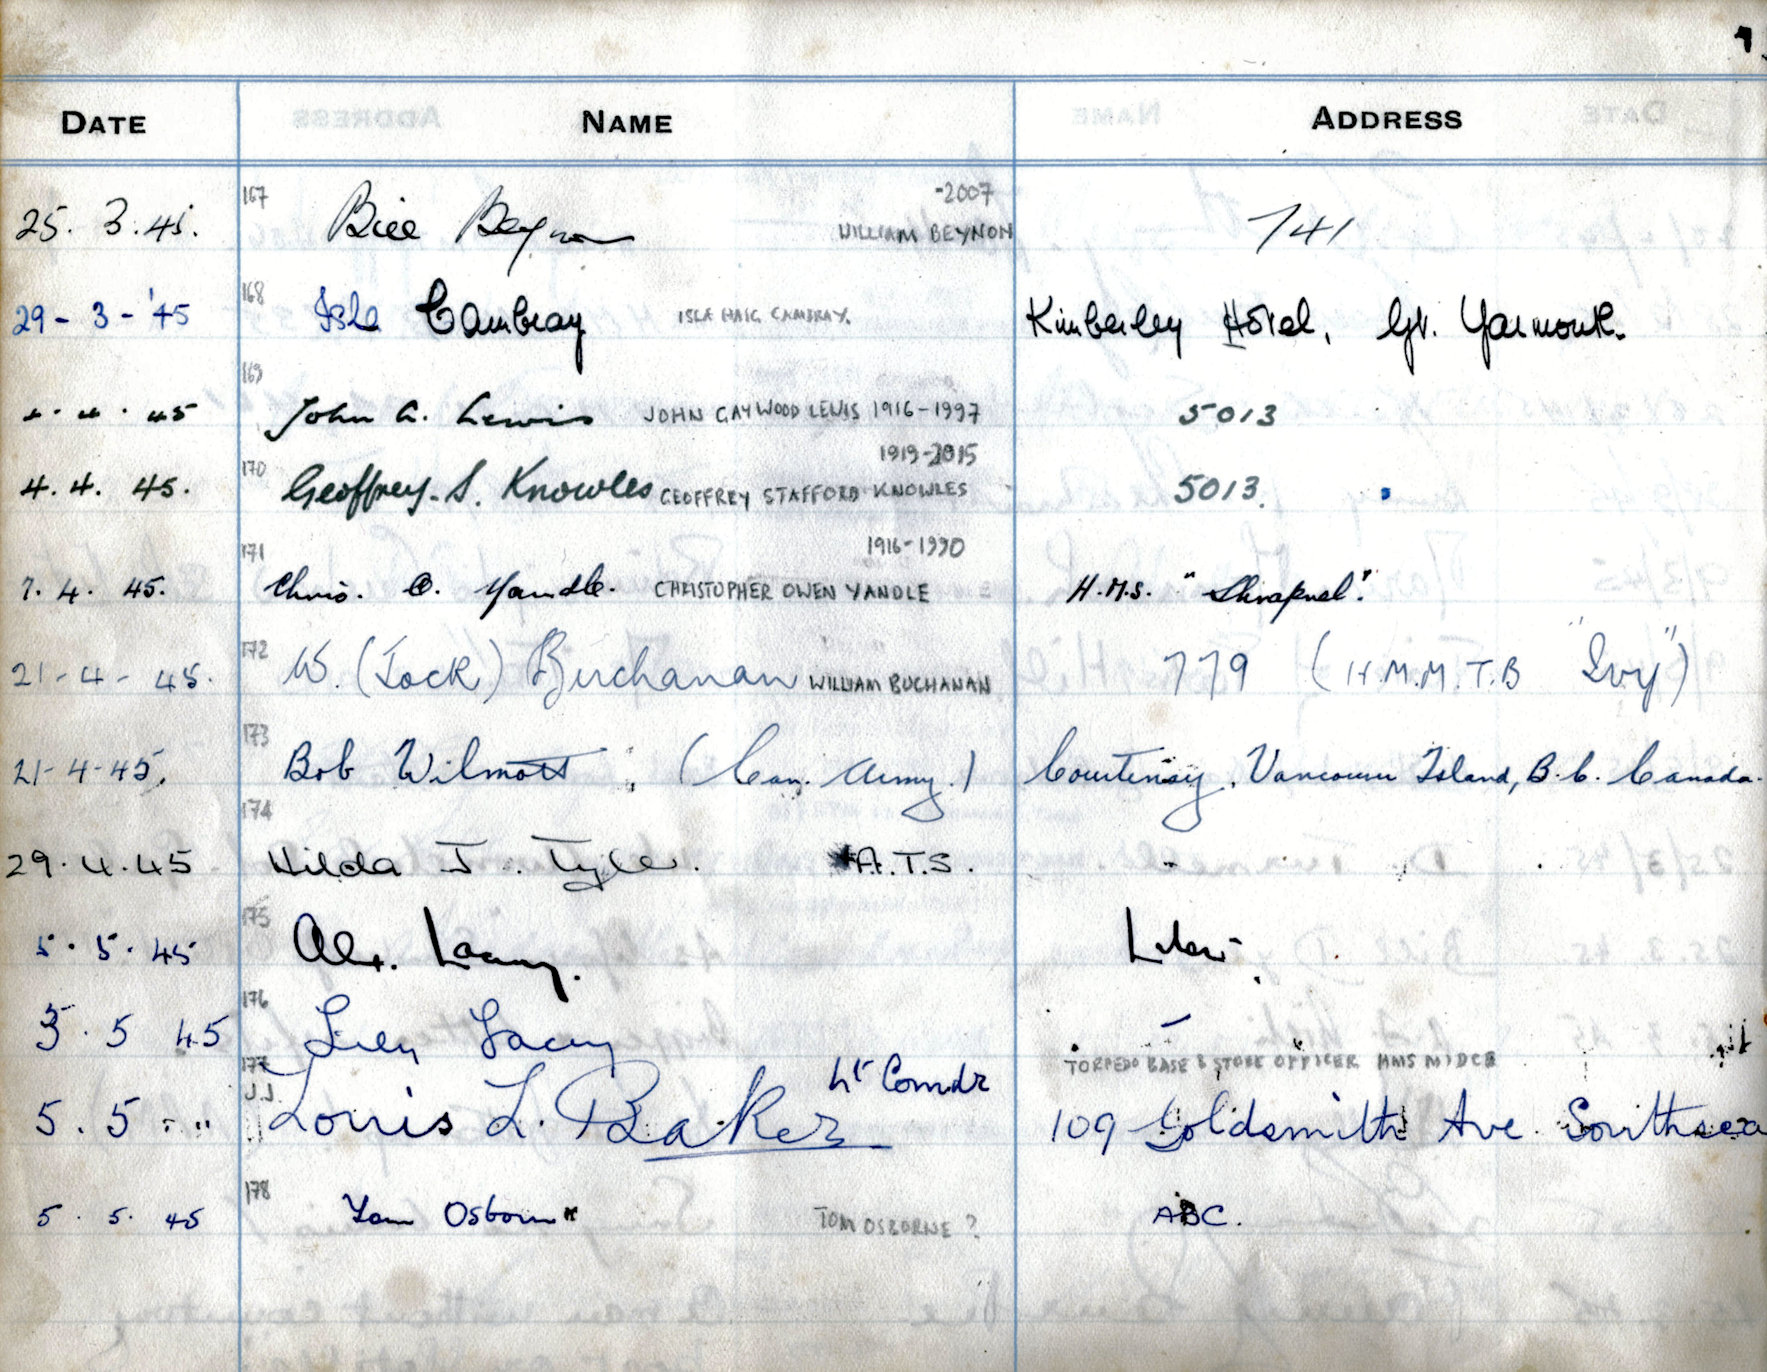 DATE NAME ADDRESS
167 -2007
25. 3. 45. Bill Beynon WILLIAM BEYNON 741
168
29 - 3 - '45 Isla Cambray ISLA HAIG CAMBRAY. Kimberley Hotel, Gt. Yarmouth.
169
4. 4. 45 John G. Lewis JOHN GAYWOOD LEWIS 1916-1997 5013
170 1919-2015
4. 4. 45. Geoffrey. S. Knowles GEOFFREY STAFFORD KNOWLES 5013.
171 1916-1990
7. 4. 45. Chris. O. Yandle. CHRISTOPHER OWEN YANDLE H.M.S. "Shrapnel".
172
21 - 4 - 45. W. (Jock) Buchanan WILLIAM BUCHANAN 779 (H.M.M.T.B "Ivy")
173
21-4-45. Bob Wilmott. (Can. Army.) Courtenay, Vancouver Island, B.C. Canada.
174
29. 4. 45 Hilda J. Tyler. A.T.S. -
175
5. 5. 45 Alex. Lacey.
176
5. 5 45 Lily Lacey -
177 Lt Comdr TORPEDO BASE & STORE OFFICER HMS MIDGE
5. 5 " Louis L. Baker 109 Goldsmith Ave Southsea
178
5. 5. 45 Tom Osborne TOM OSBORNE? ABC.